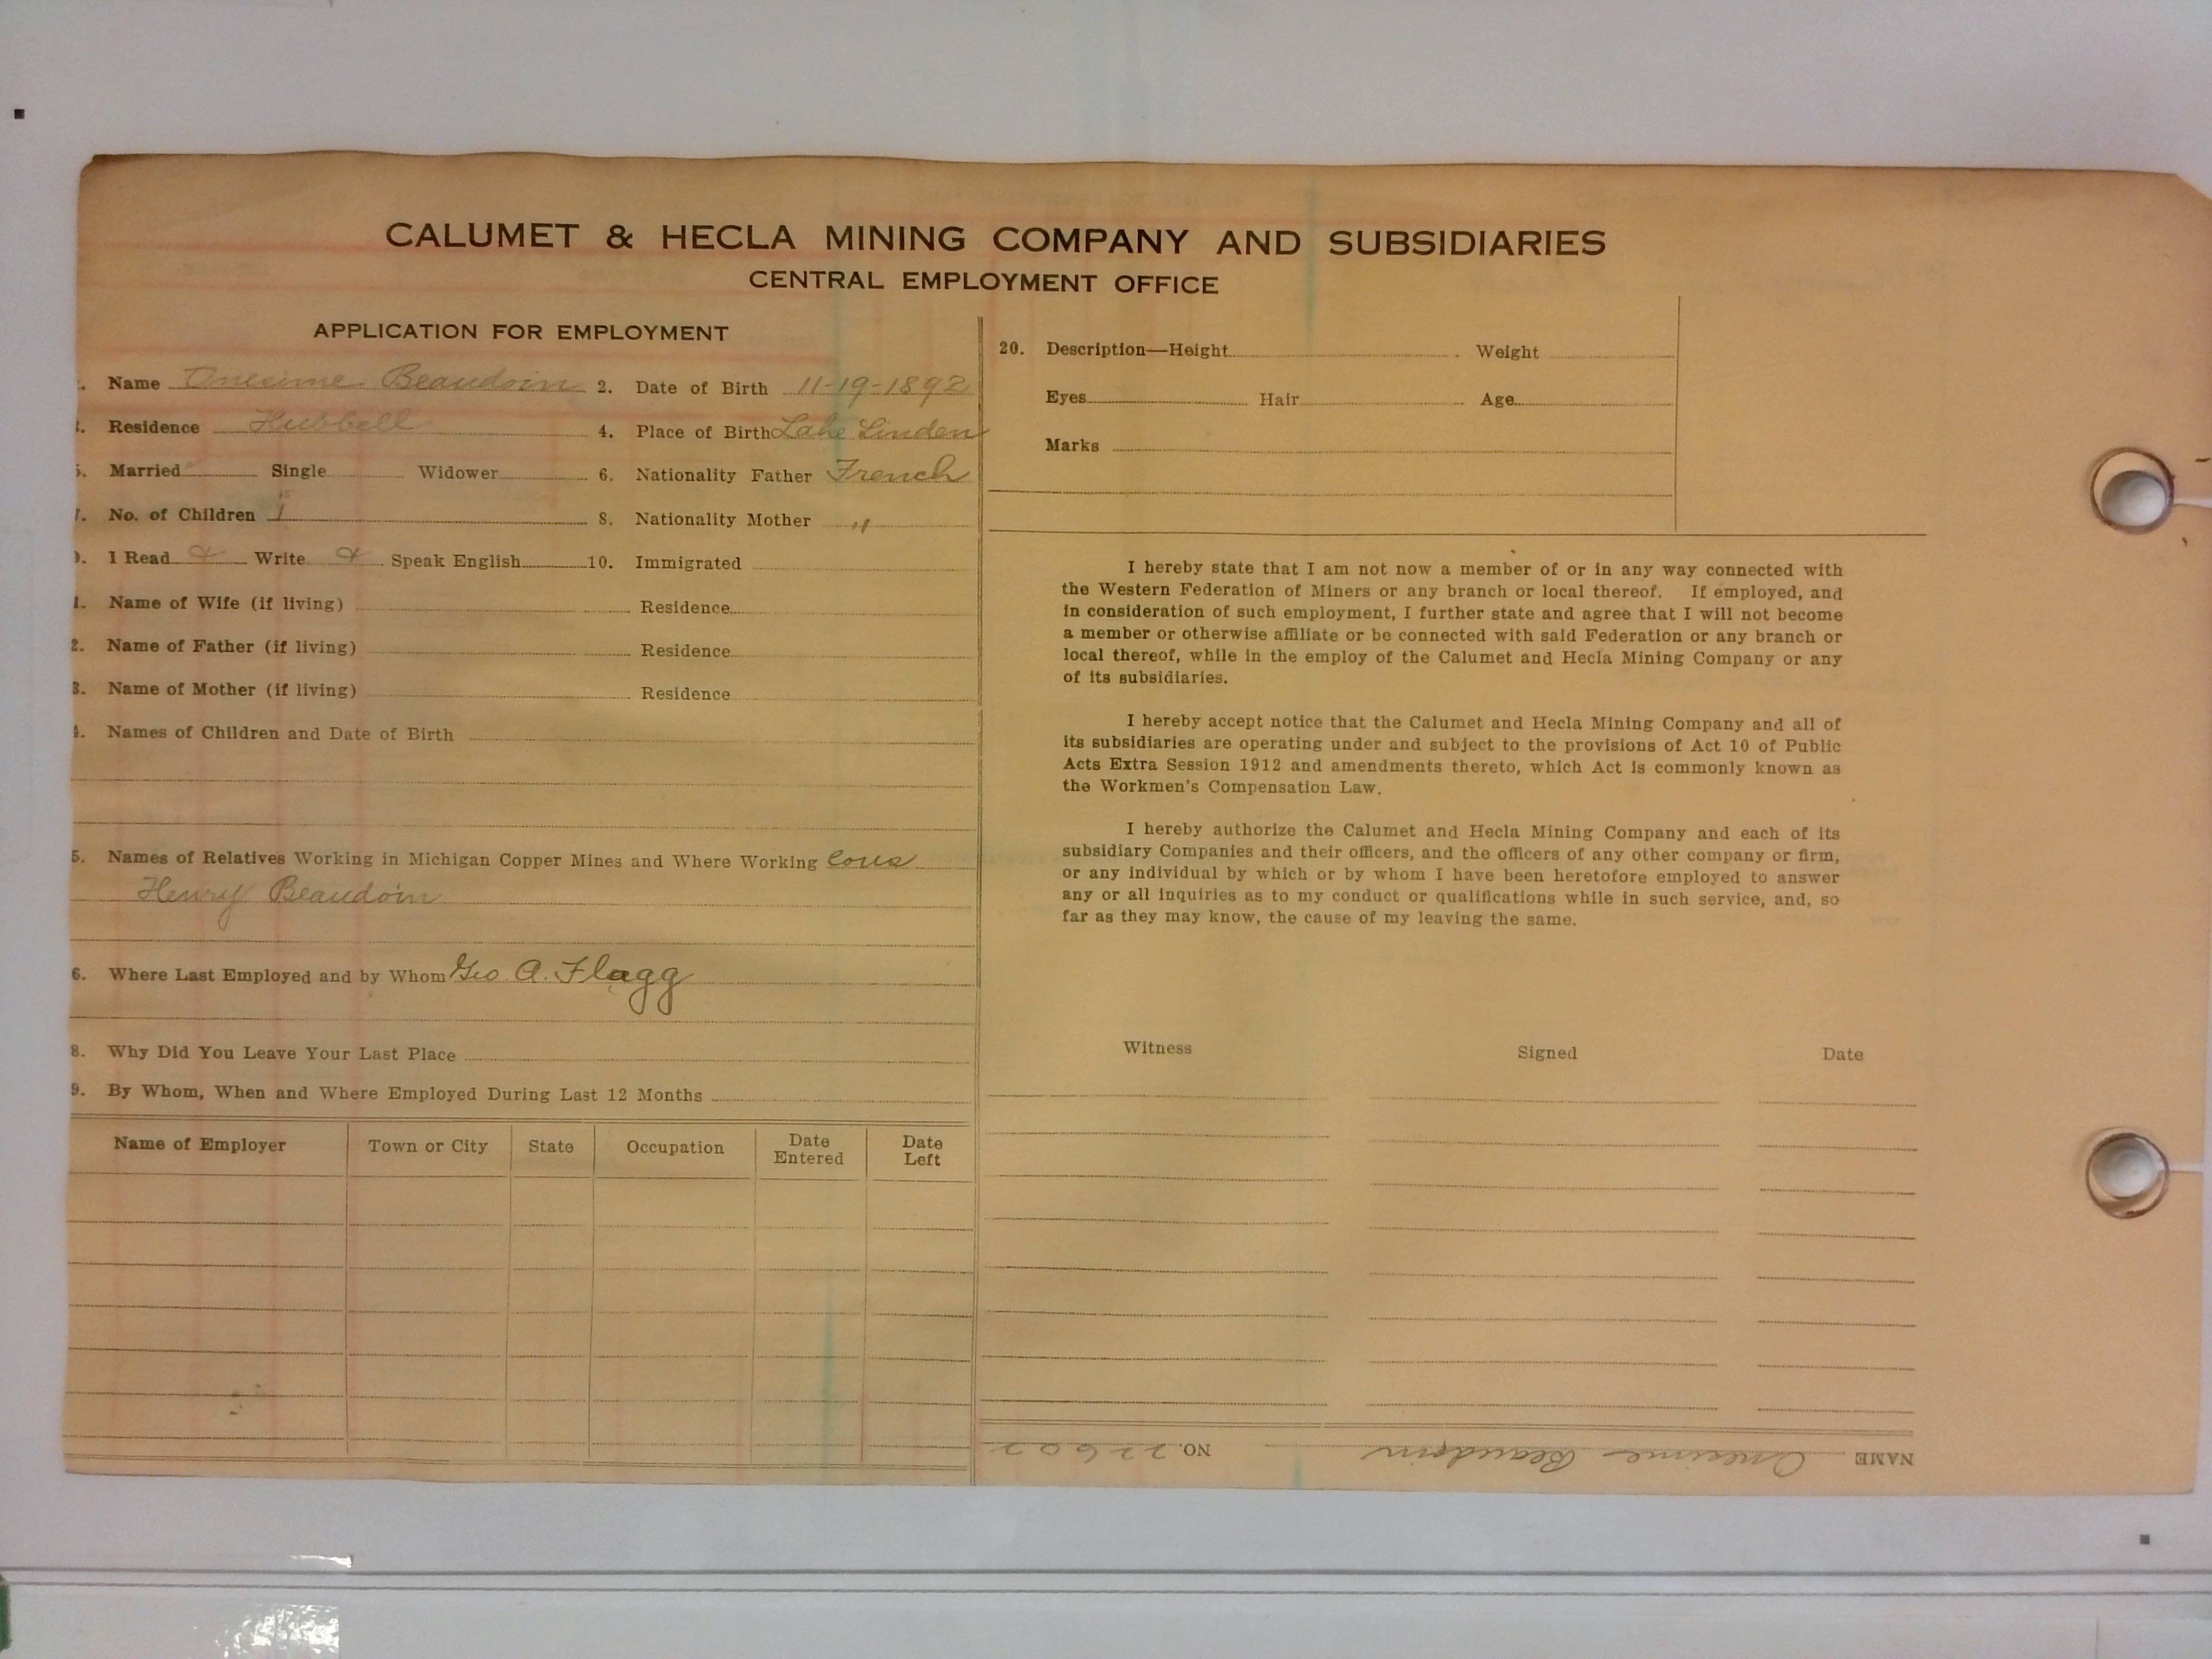 CALUMET & HECLA MINING COMPANY AND SUBSIDIARIES
CENTRAL EMPLOYMENT OFFICE
APPLICATION FOR EMPLOYMENT
. Name Onesime Beaudoin 2. Date of Birth 11-19-1892
. Residence Hubbell 4. Place of Birth Lake Linden
5. Married Single Widower 6. Nationality Father French
7. No. of Children 1 8. Nationality Mother "
9. I Read & Write & Speak English 10. Immigrated
1. Name of Wife (if living) Residence
2. Name of Father (if living) Residence
3. Name of Mother (if living) Residence
4. Names of Children and Date of Birth
5. Names of Relatives Working in Michigan Copper Mines and Where Working Cous
Henry Beaudoin
6. Where Last Employed and by Whom Geo A. Flagg
8. Why Did You Leave Your Last Place
9. By Whom, When and Where Employed During Last 12 Months
Name of Employer Town or City State Occupation Date Entered Date Left
20. Description—Height Weight
Eyes Hair Age
Marks
I hereby state that I am not now a member of or in any way connected with
the Western Federation of Miners or any branch or local thereof. If employed, and
in consideration of such employment, I further state and agree that I will not become
a member or otherwise affiliate or be connected with said Federation or any branch or
local thereof, while in the employ of the Calumet and Hecla Mining Company or any
of its subsidiaries.
I hereby accept notice that the Calumet and Hecla Mining Company and all of
its subsidiaries are operating under and subject to the provisions of Act 10 of Public
Acts Extra Session 1912 and amendments thereto, which Act is commonly known as
the Workmen's Compensation Law.
I hereby authorize the Calumet and Hecla Mining Company and each of its
subsidiary Companies and their officers, and the officers of any other company or firm,
or any individual by which or by whom I have been heretofore employed to answer
any or all inquiries as to my conduct or qualifications while in such service, and, so
far as they may know, the cause of my leaving the same.
Witness Signed Date
NAME Onesime Beaudoin NO. 22602